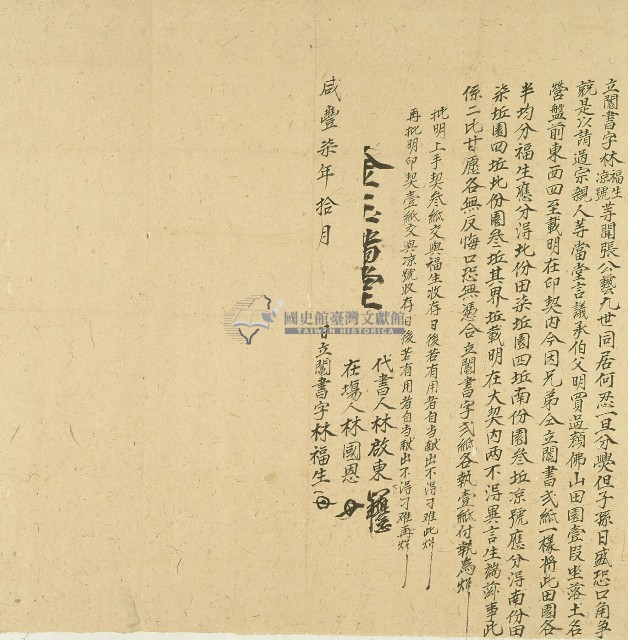 立鬮書字林福生凉號等聞張公藝九世同居何忍一旦分爨但子孫日盛恐口角爭
競是以請過宗親人等當堂言議承伯父明買過顏佛山田園壹段坐落土名
營盤前東西四至載明在印契內今因兄弟仝立鬮書貳紙一樣將此田園各
半均分福生應分得北份田柒坵園四坵南份園叁坵凉號應分得南份田
柒坵園四坵北份園叁坵其界址載明在大契內两不得異言生端滋事此
係二比甘愿各無反悔口恐無憑合立鬮書字貳紙各執壹紙付執為炤
批明上手契叁紙交與福生收存日後若有用者自当献出不得刁难此炤
再批明印契壹紙交與凉號收存日後若有用者自当献出不得刁难再炤
代書人林啟東
在塲人林國恩
咸豐柒年拾月
日立鬮書字林福生
國史館臺灣文獻館
TAIWAN HISTORICA